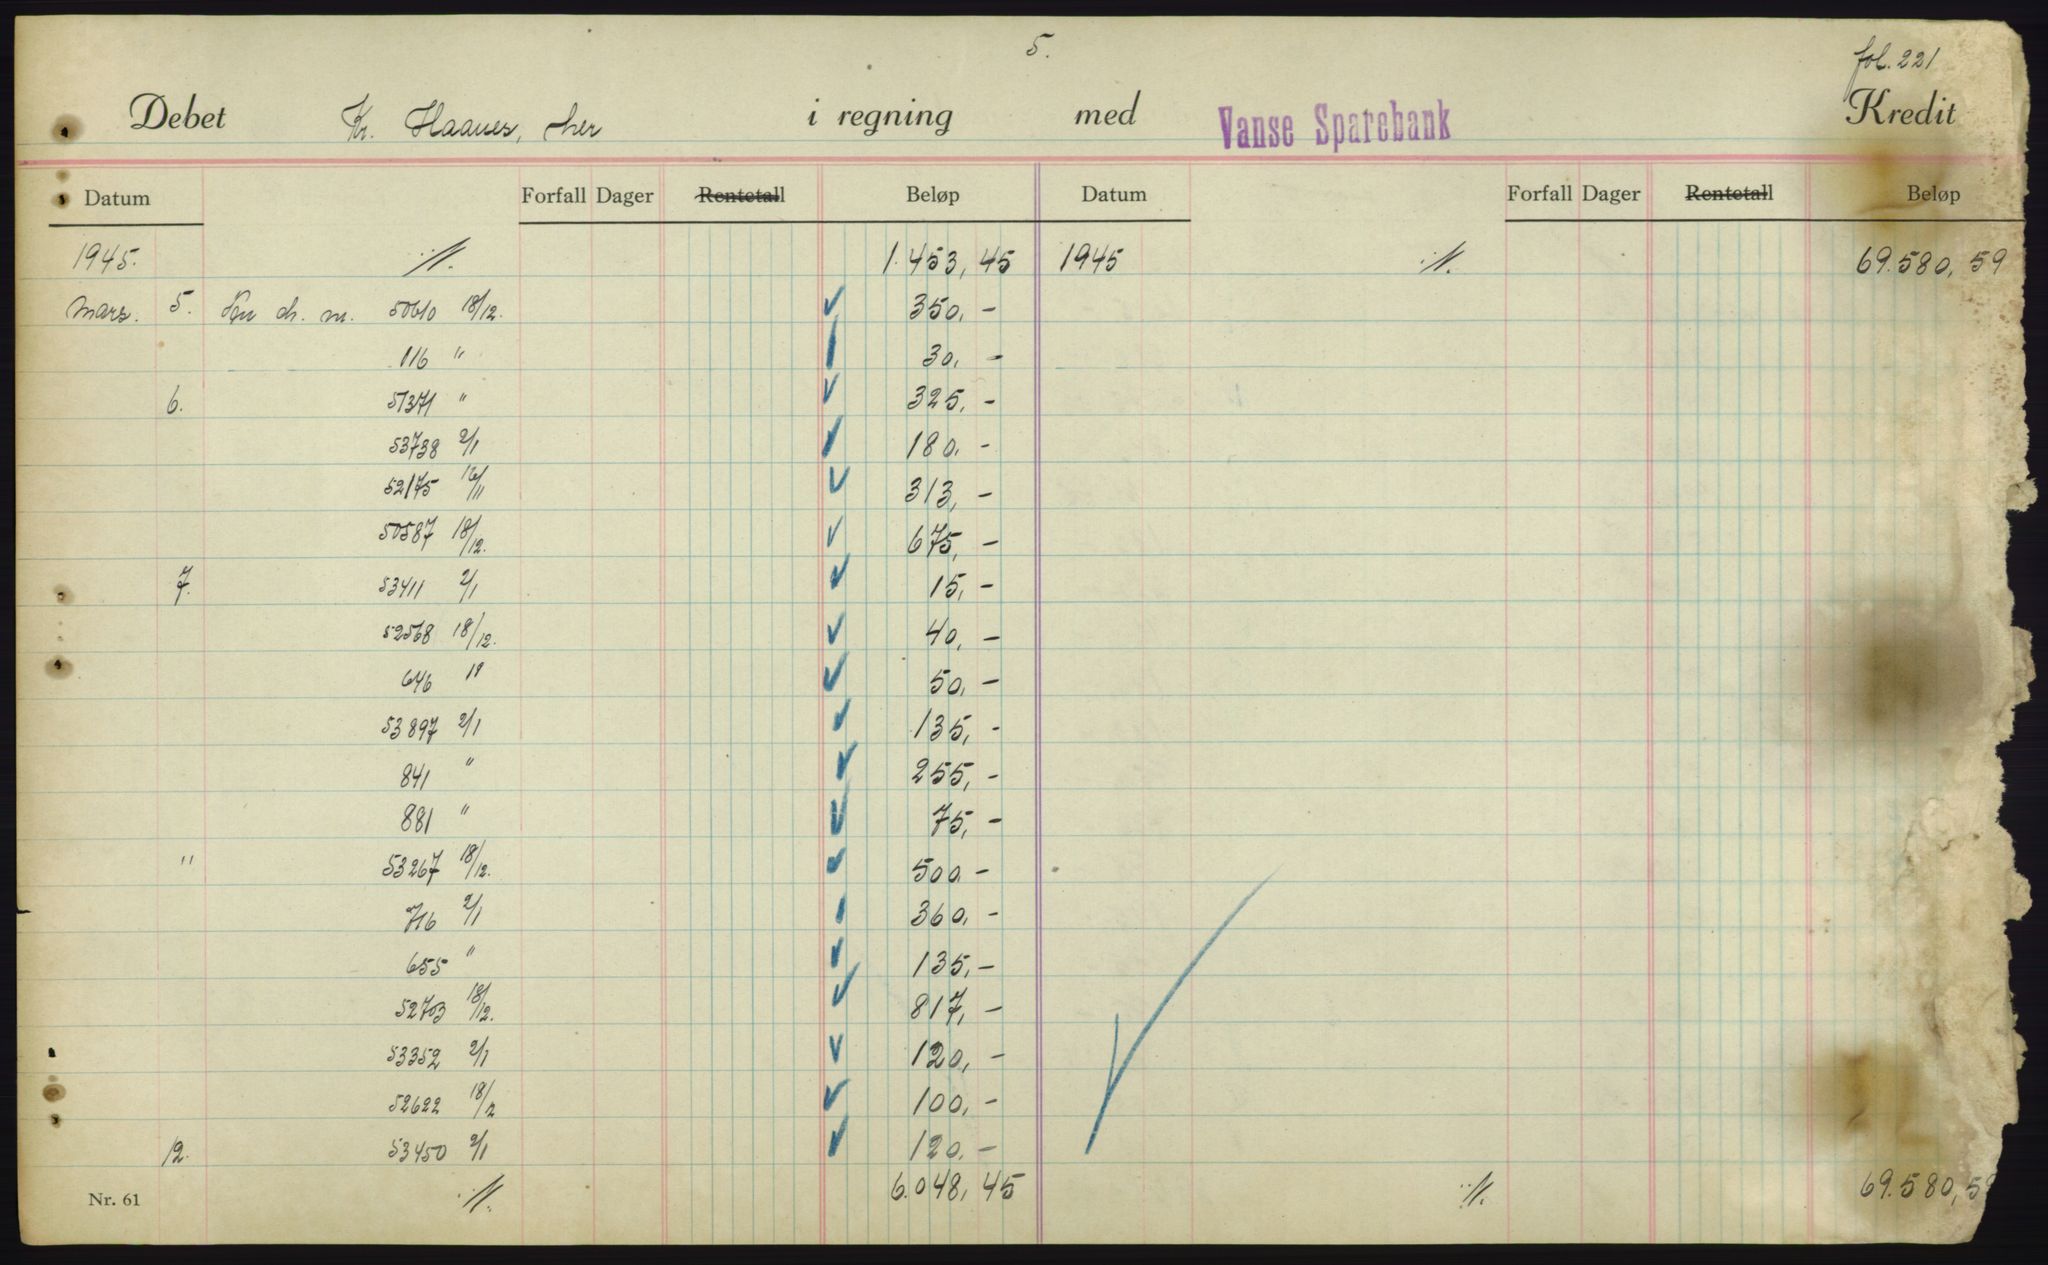 5.
fol. 221
Debet Kr. Haanes, her i regning med Vanse Sparebank Kredit
Datum Forfall Dager Rentetall Beløp Datum Forfall Dager Rentetall Beløp
1945. ·/. 1.453,45 1945 ·/. 69.580,59
mars. 5. ch. m. 50610 18/12. 350,-
116 " 30,-
6. 51371 " 325,-
53738 2/1 180,-
52175 16/11 313,-
50587 18/12. 675,-
7. 53411 2/1 15,-
52568 18/12. 40,-
646 " 50,-
53897 2/1 135,-
841 " 255,-
881 " 75,-
" 53267 18/12. 500-
716 2/1 360,-
655 " 135,-
52703 18/12. 817,-
53352 2/1 120,-
52622 18/12 100,-
12. 53450 2/1 120,-
Nr. 61 ·/. 6.048,45 ·/. 69.580,59